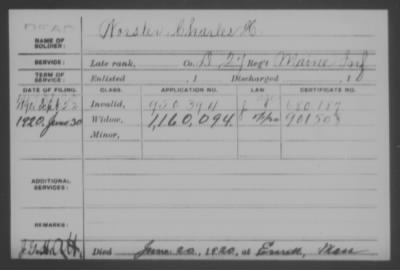 DEAD
NAME OF SOLDIER: Worster, Charles H.
SERVICE: Late rank, Co. D, 27 Reg't Maine Inf
TERM OF SERVICE: Enlisted , 1 Discharged , 1
DATE OF FILING. CLASS. APPLICATION NO. LAW. CERTIFICATE NO.
Sept 22 Invalid, 950394 680187
1920, June 30 Widow, 1,160,094 901505
Minor,
ADDITIONAL SERVICES:
REMARKS:
Died June 20, 1920, at